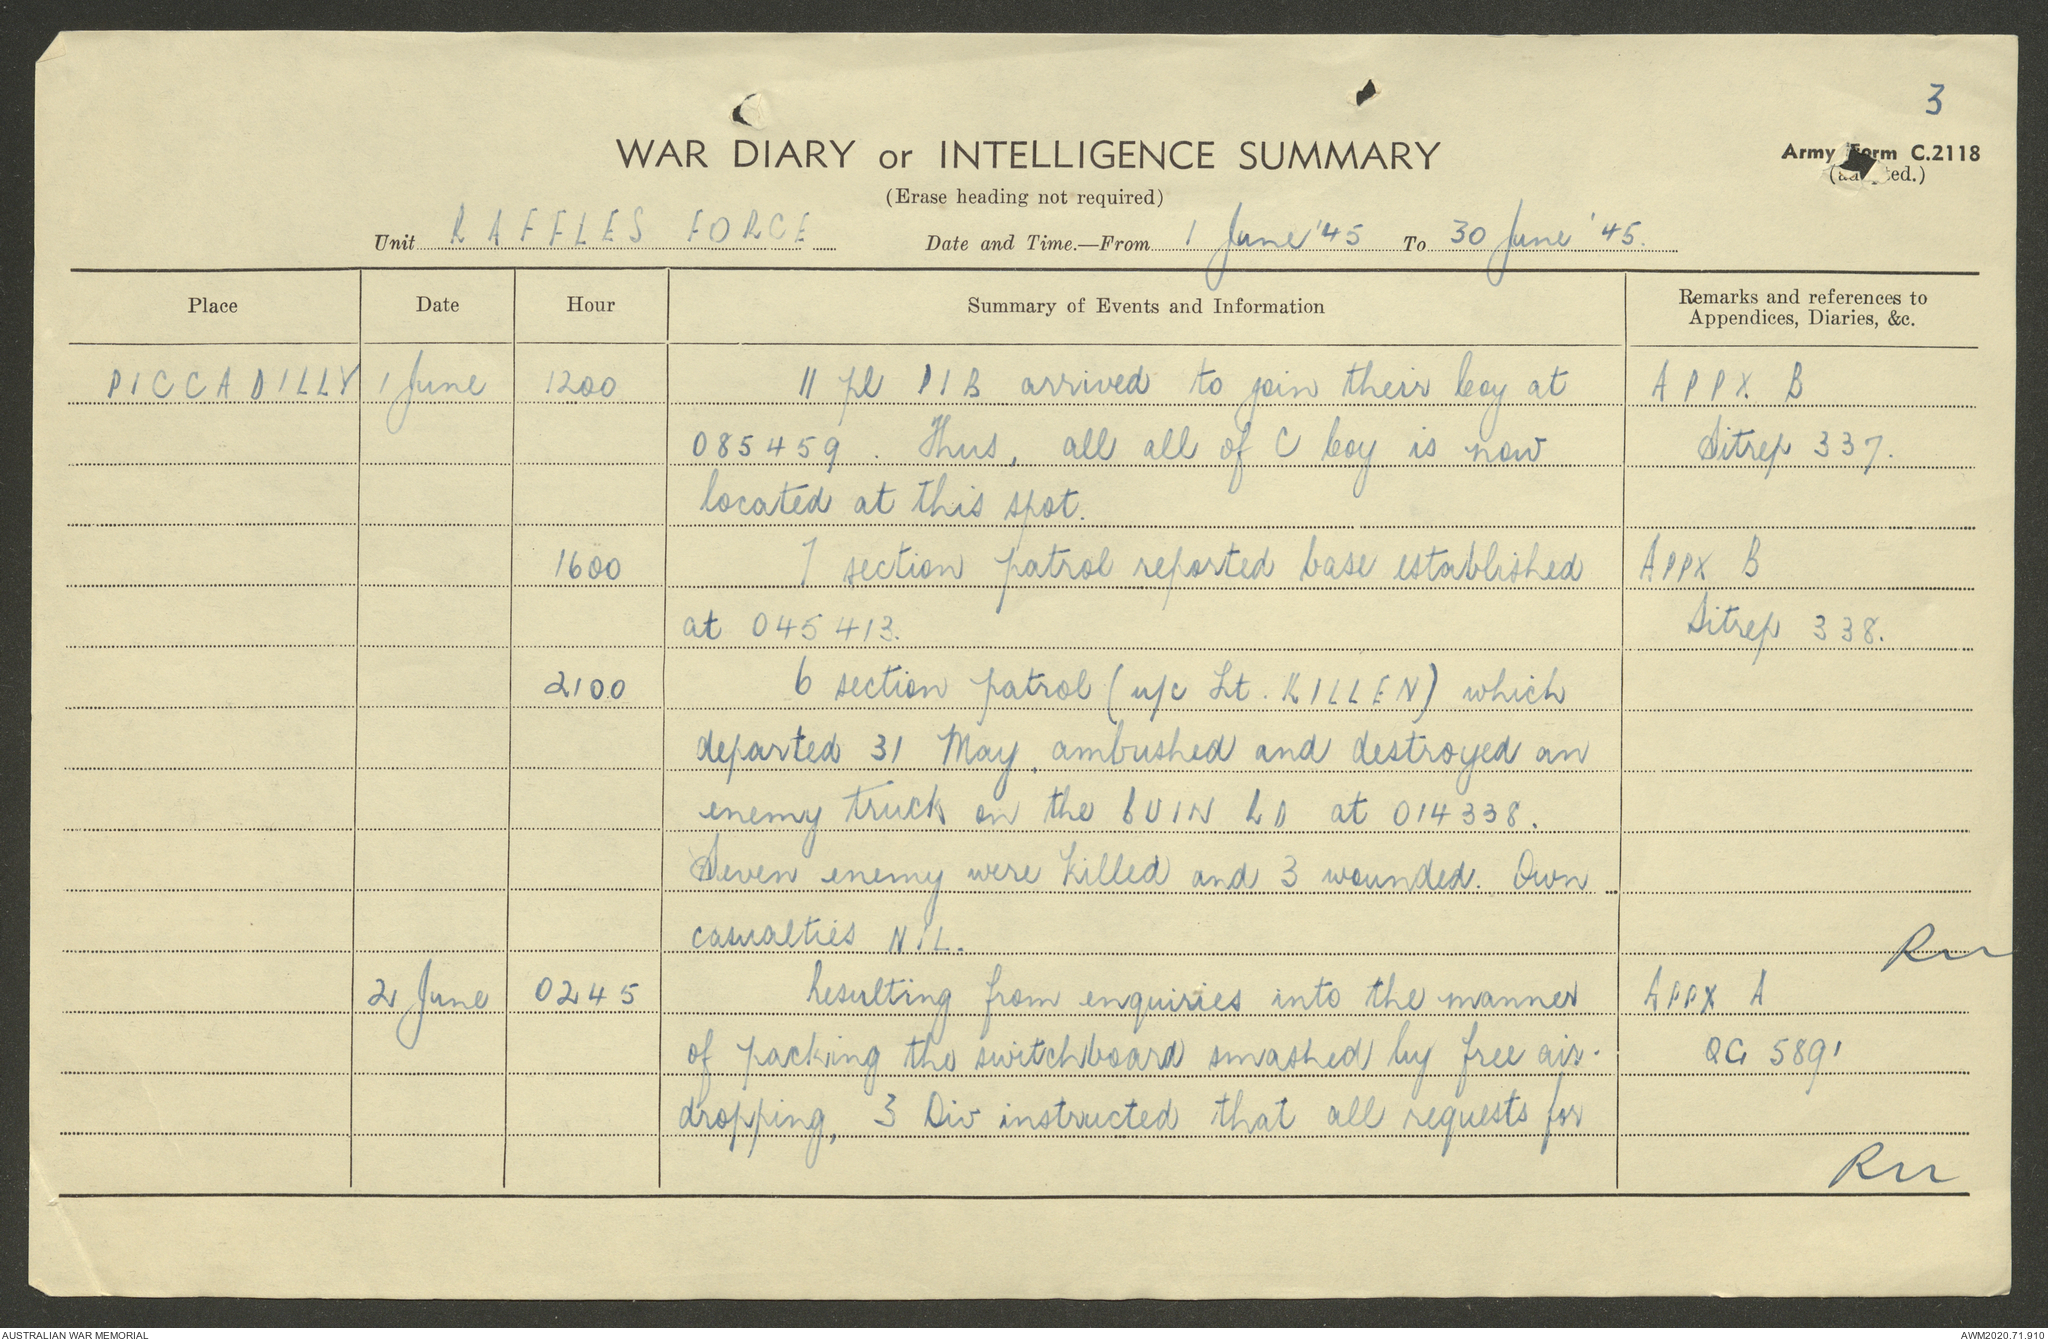 3
WAR DIARY or INTELLIGENCE SUMMARY
Army Form C.2118
(Erase heading not required)
Unit RAFFLES FORCE Date and Time.—From 1 June '45 To 30 June '45.
Place Date Hour Summary of Events and Information Remarks and references to
Appendices, Diaries, &c.
PICCADILLY 1 June 1200 11 pl PIB arrived to join their Coy at APPX B
085459. Thus, all all of C Coy is now Sitrep 337.
located at this spot.
1600 7 section patrol reported base established APPX B
at 045413. Sitrep 338.
2100 6 section patrol (u/c Lt. KILLEN) which
departed 31 May, ambushed and destroyed an
enemy truck on the BUIN RD at 014338.
Seven enemy were killed and 3 wounded. Own
casualties NIL.
2 June 0245 Resulting from enquiries into the manner APPX A
of packing the switchboard smashed by free air- QG 5891
dropping, 3 Div instructed that all requests for
AUSTRALIAN WAR MEMORIAL AWM2020.71.910